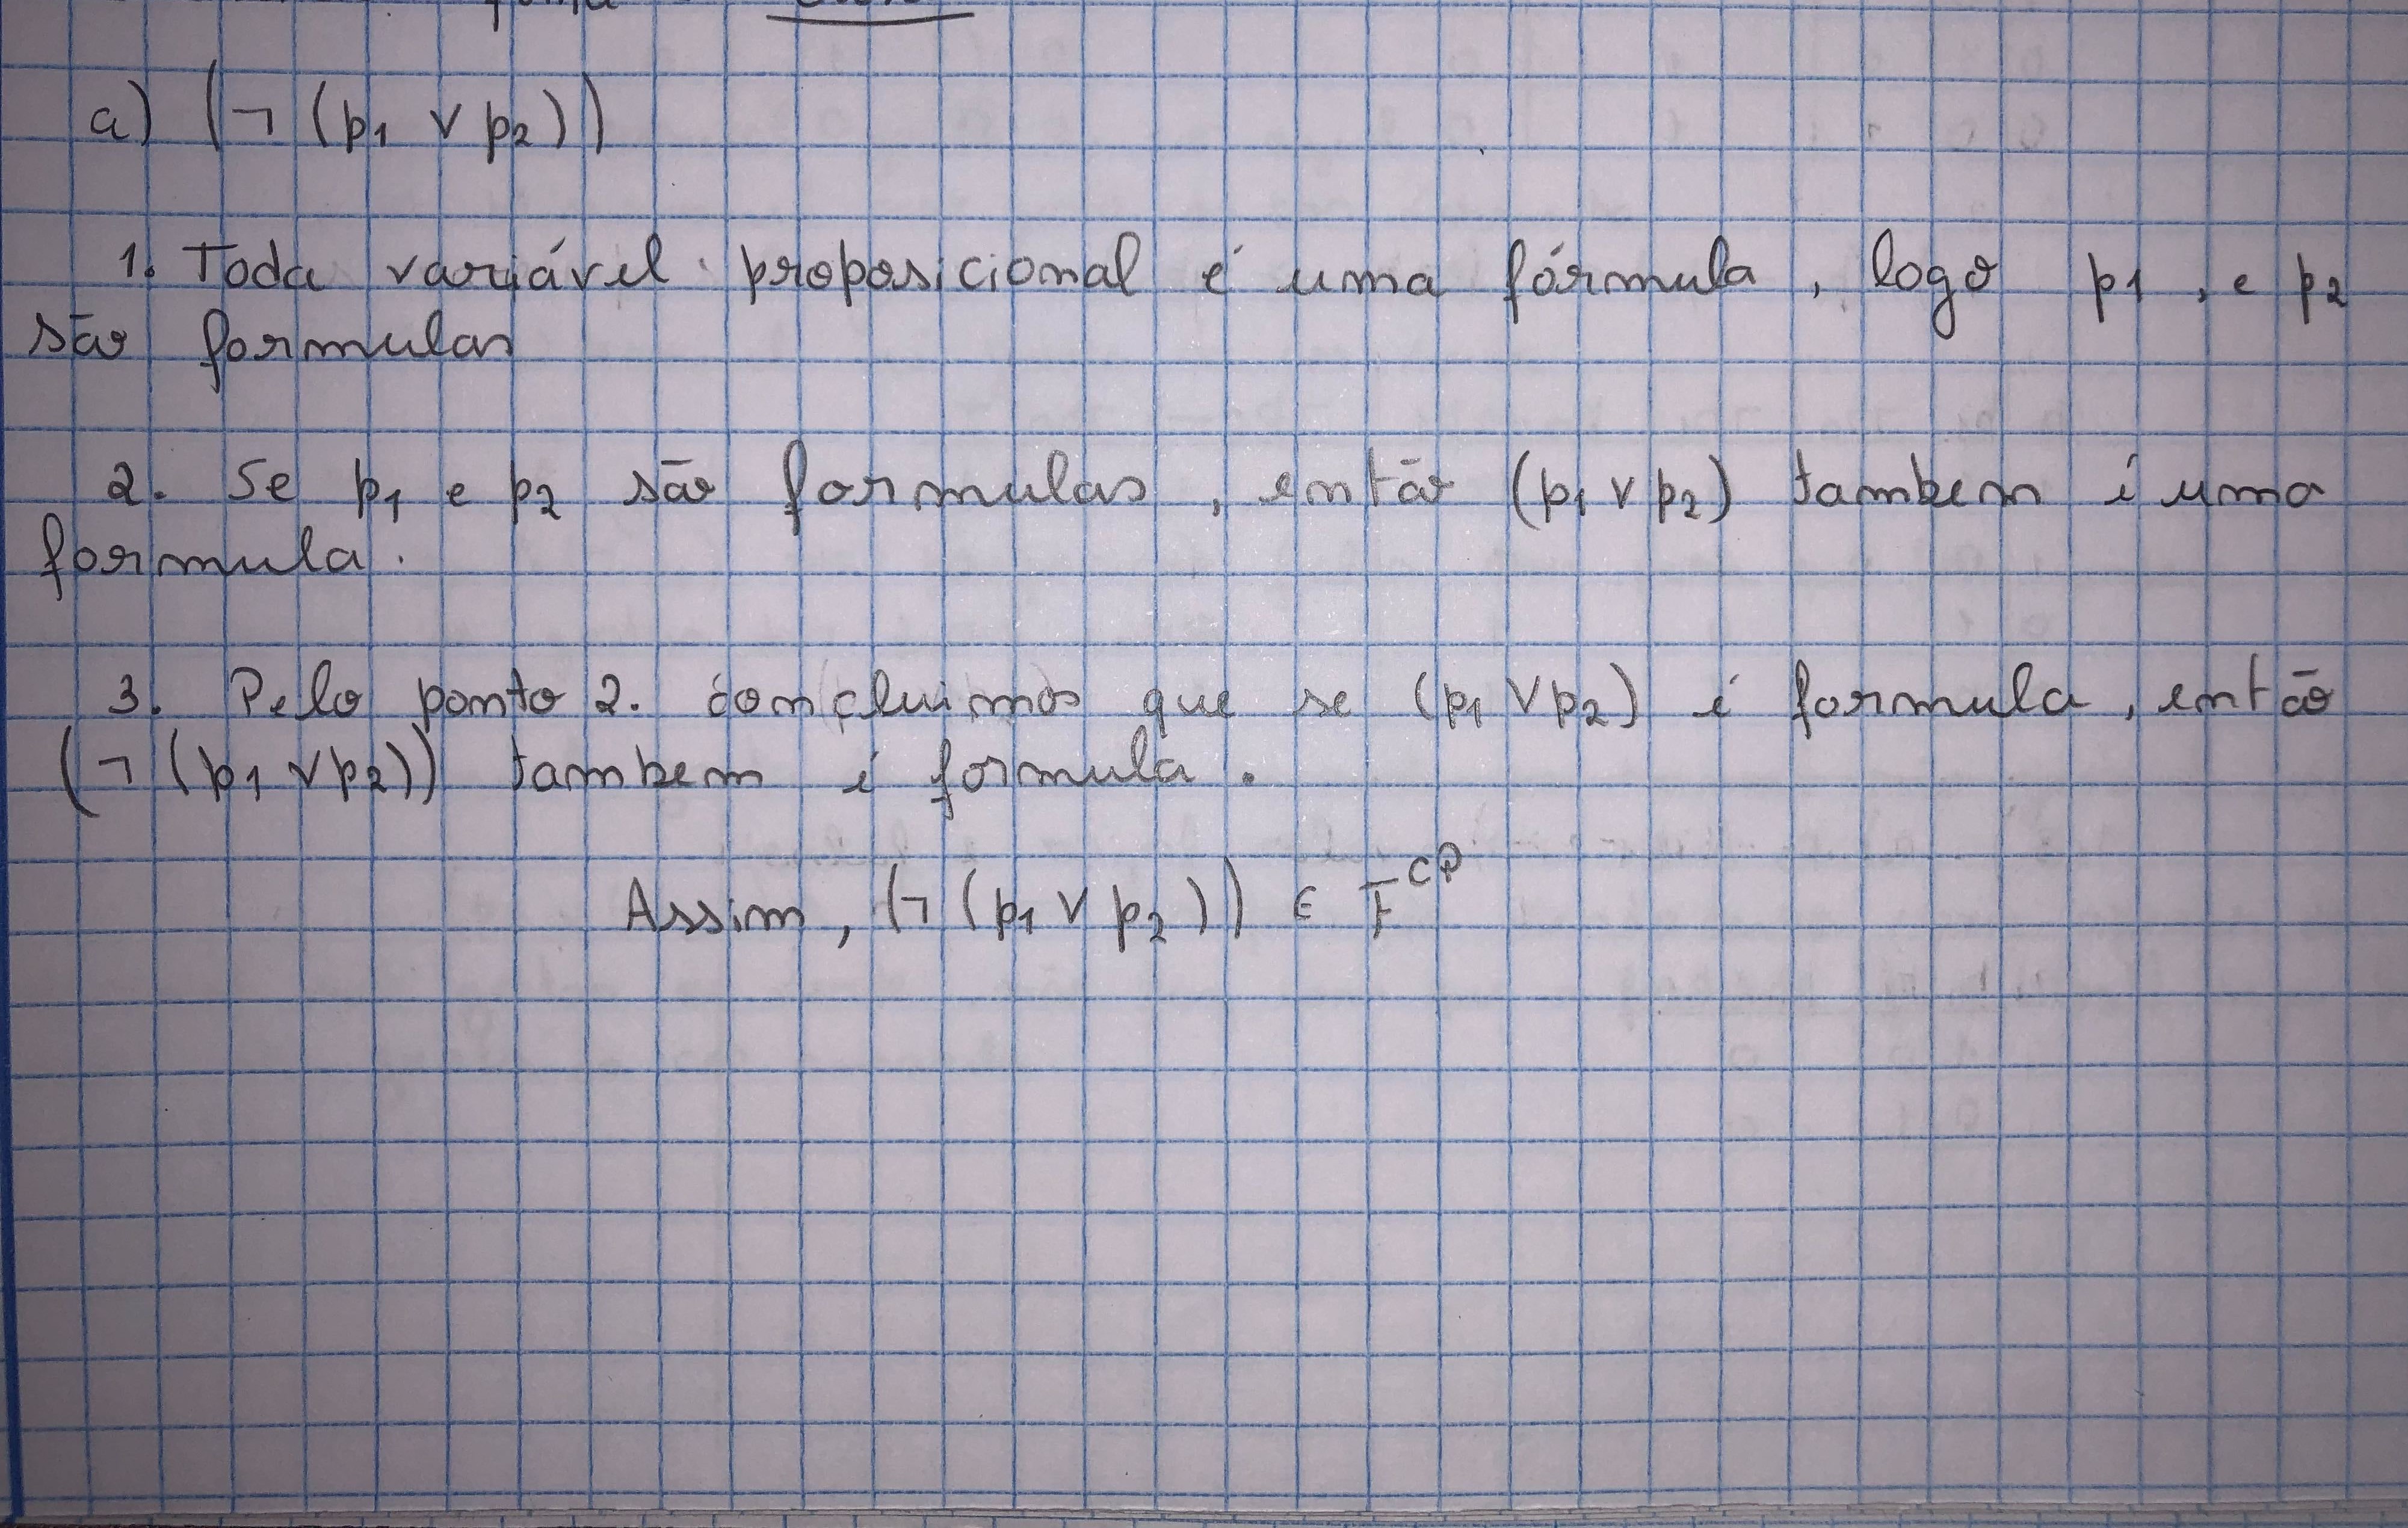 a) (¬ (p1 ∨ p2))
1. Toda variável proposicional é uma fórmula, logo p1, e p2
são formulas
2. Se p1 e p2 são formulas, então (p1 ∨ p2) tambem é uma
formula.
3. Pelo ponto 2. concluimos que se (p1 ∨ p2) é formula, então
(¬ (p1 ∨ p2)) tambem é formula.
Assim, (¬ (p1 ∨ p2)) ∈ F^CP